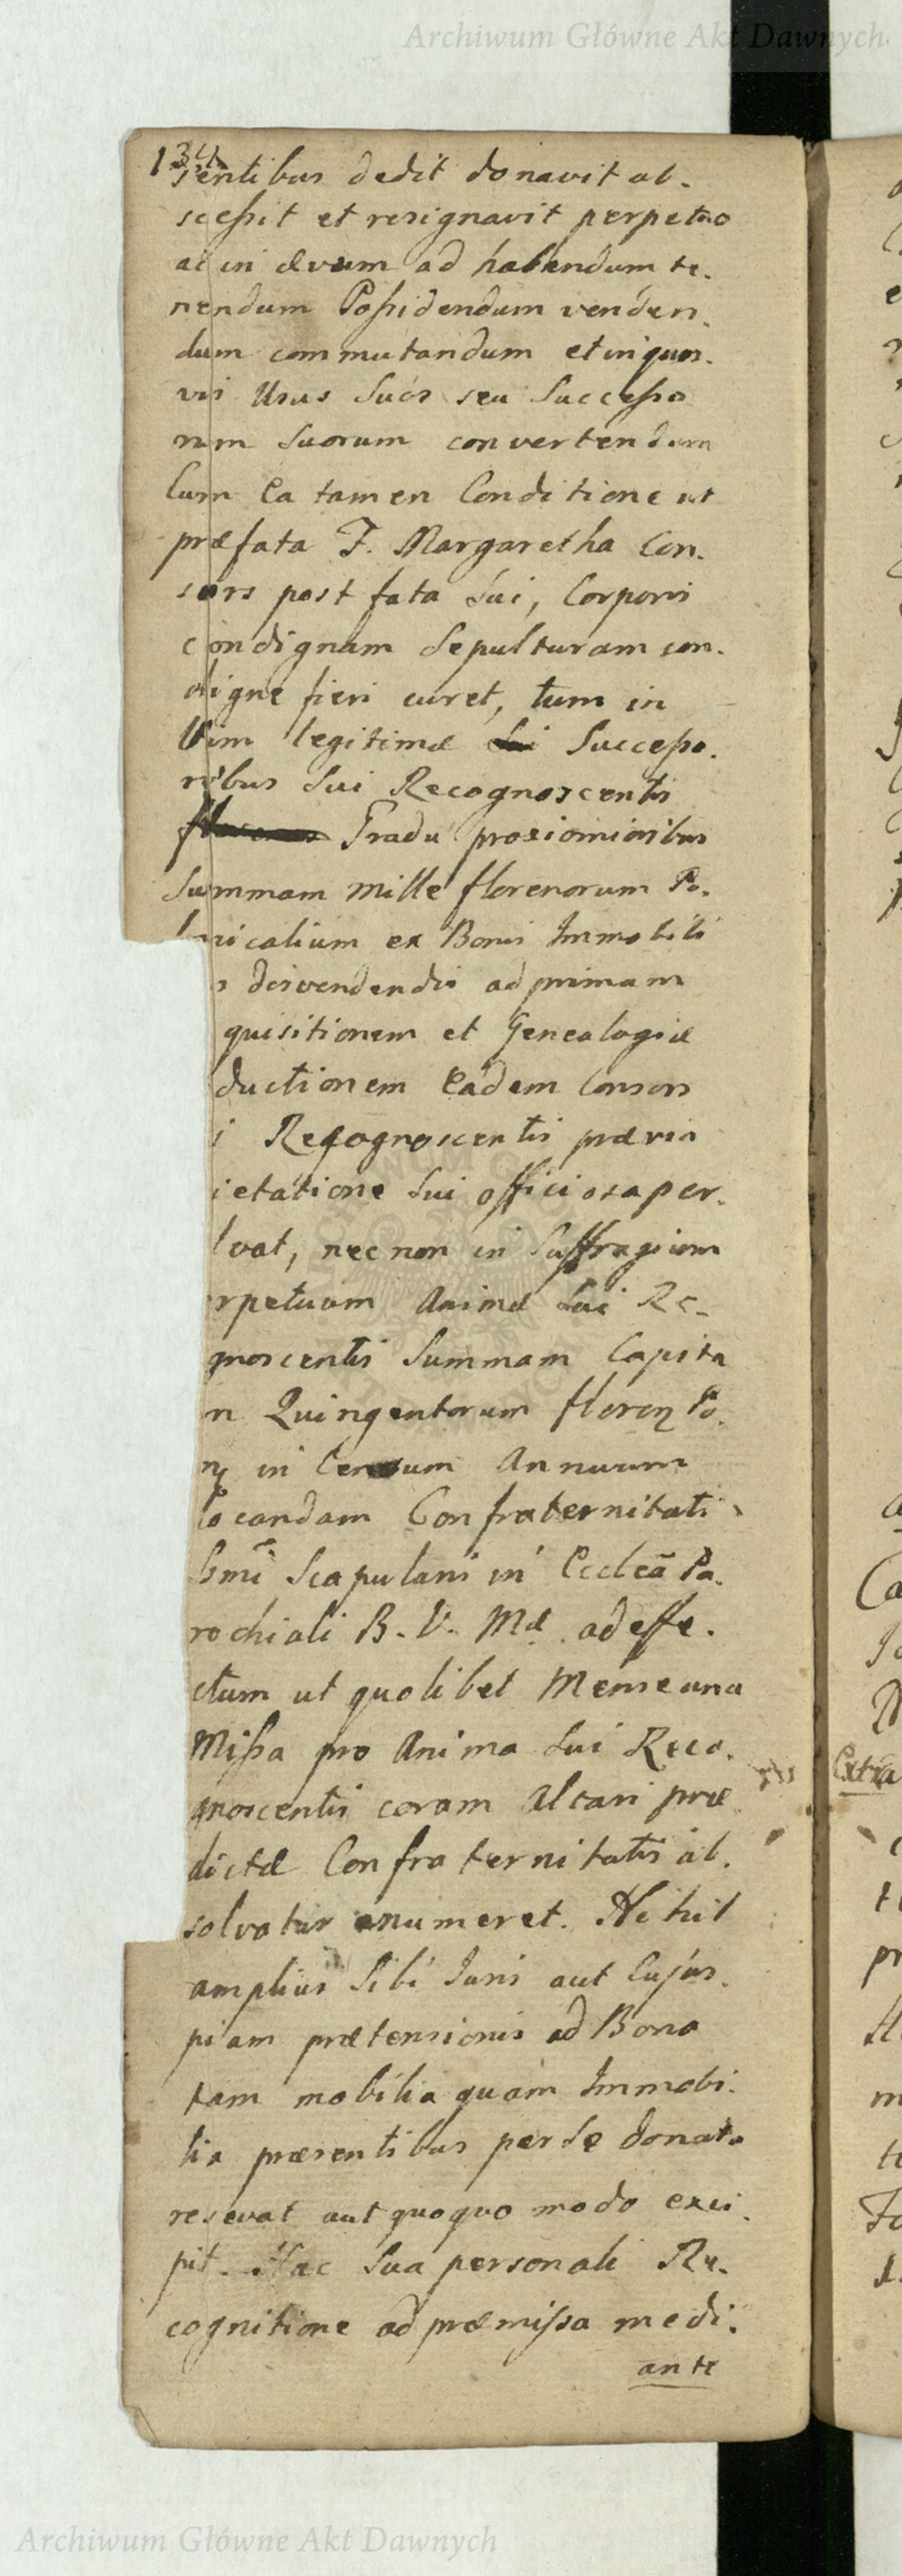 Archiwum Główne Akt Dawnych
134
sentibus dedit donavit ab-
scessit et resignavit perpetuo
ac in ævum ad habendum te-
nendum Possidendum venden-
dum commutandum et in quos-
vis Usus Suos seu Successo
rum Suorum convertendum
Cum Ea tamen Conditione ut
præfata F. Margaretha Con-
sors post fata Sui, Corporis
condignam Sepulturam con-
digne fieri curet, tum in
Vim legitimæ Sui Successo-
ribus Sui Recognoscentis
Gradu proxiomioribus
Summam Mille florenorum Po-
lonicalium ex Bonis Immobili
s disvendendis ad primam
quisitionem et Genealogiæ
ductionem Eadem Consors
i Recognoscentis prævia
ietatione Sui officiosa per-
lvat, nec non in Suffragium
rpetuum Animæ Sui Re-
gnoscentis Summam Capita
n Quingentorum floren Po-
in Censum Annuum
locandam Confraternitati
Ssmi Scapularis in Ecclea Pa-
rochiali B. V. Mæ ad effe-
ctum ut quolibet Mense una
Missa pro Anima Sui Reco-
gnoscentis coram Altari præ
dictæ Confraternitatis ab-
solvatur enumeret. Nihil
amplius Sibi Juris aut Cujus-
piam prætensionis ad Bona
tam mobilia quam Immobi-
lia præsentibus per Se donata
resevat aut quoquo modo exci-
pit. Hac Sua personali Re-
cognitione ad præmissa medi-
ante
Extra
Archiwum Główne Akt Dawnych